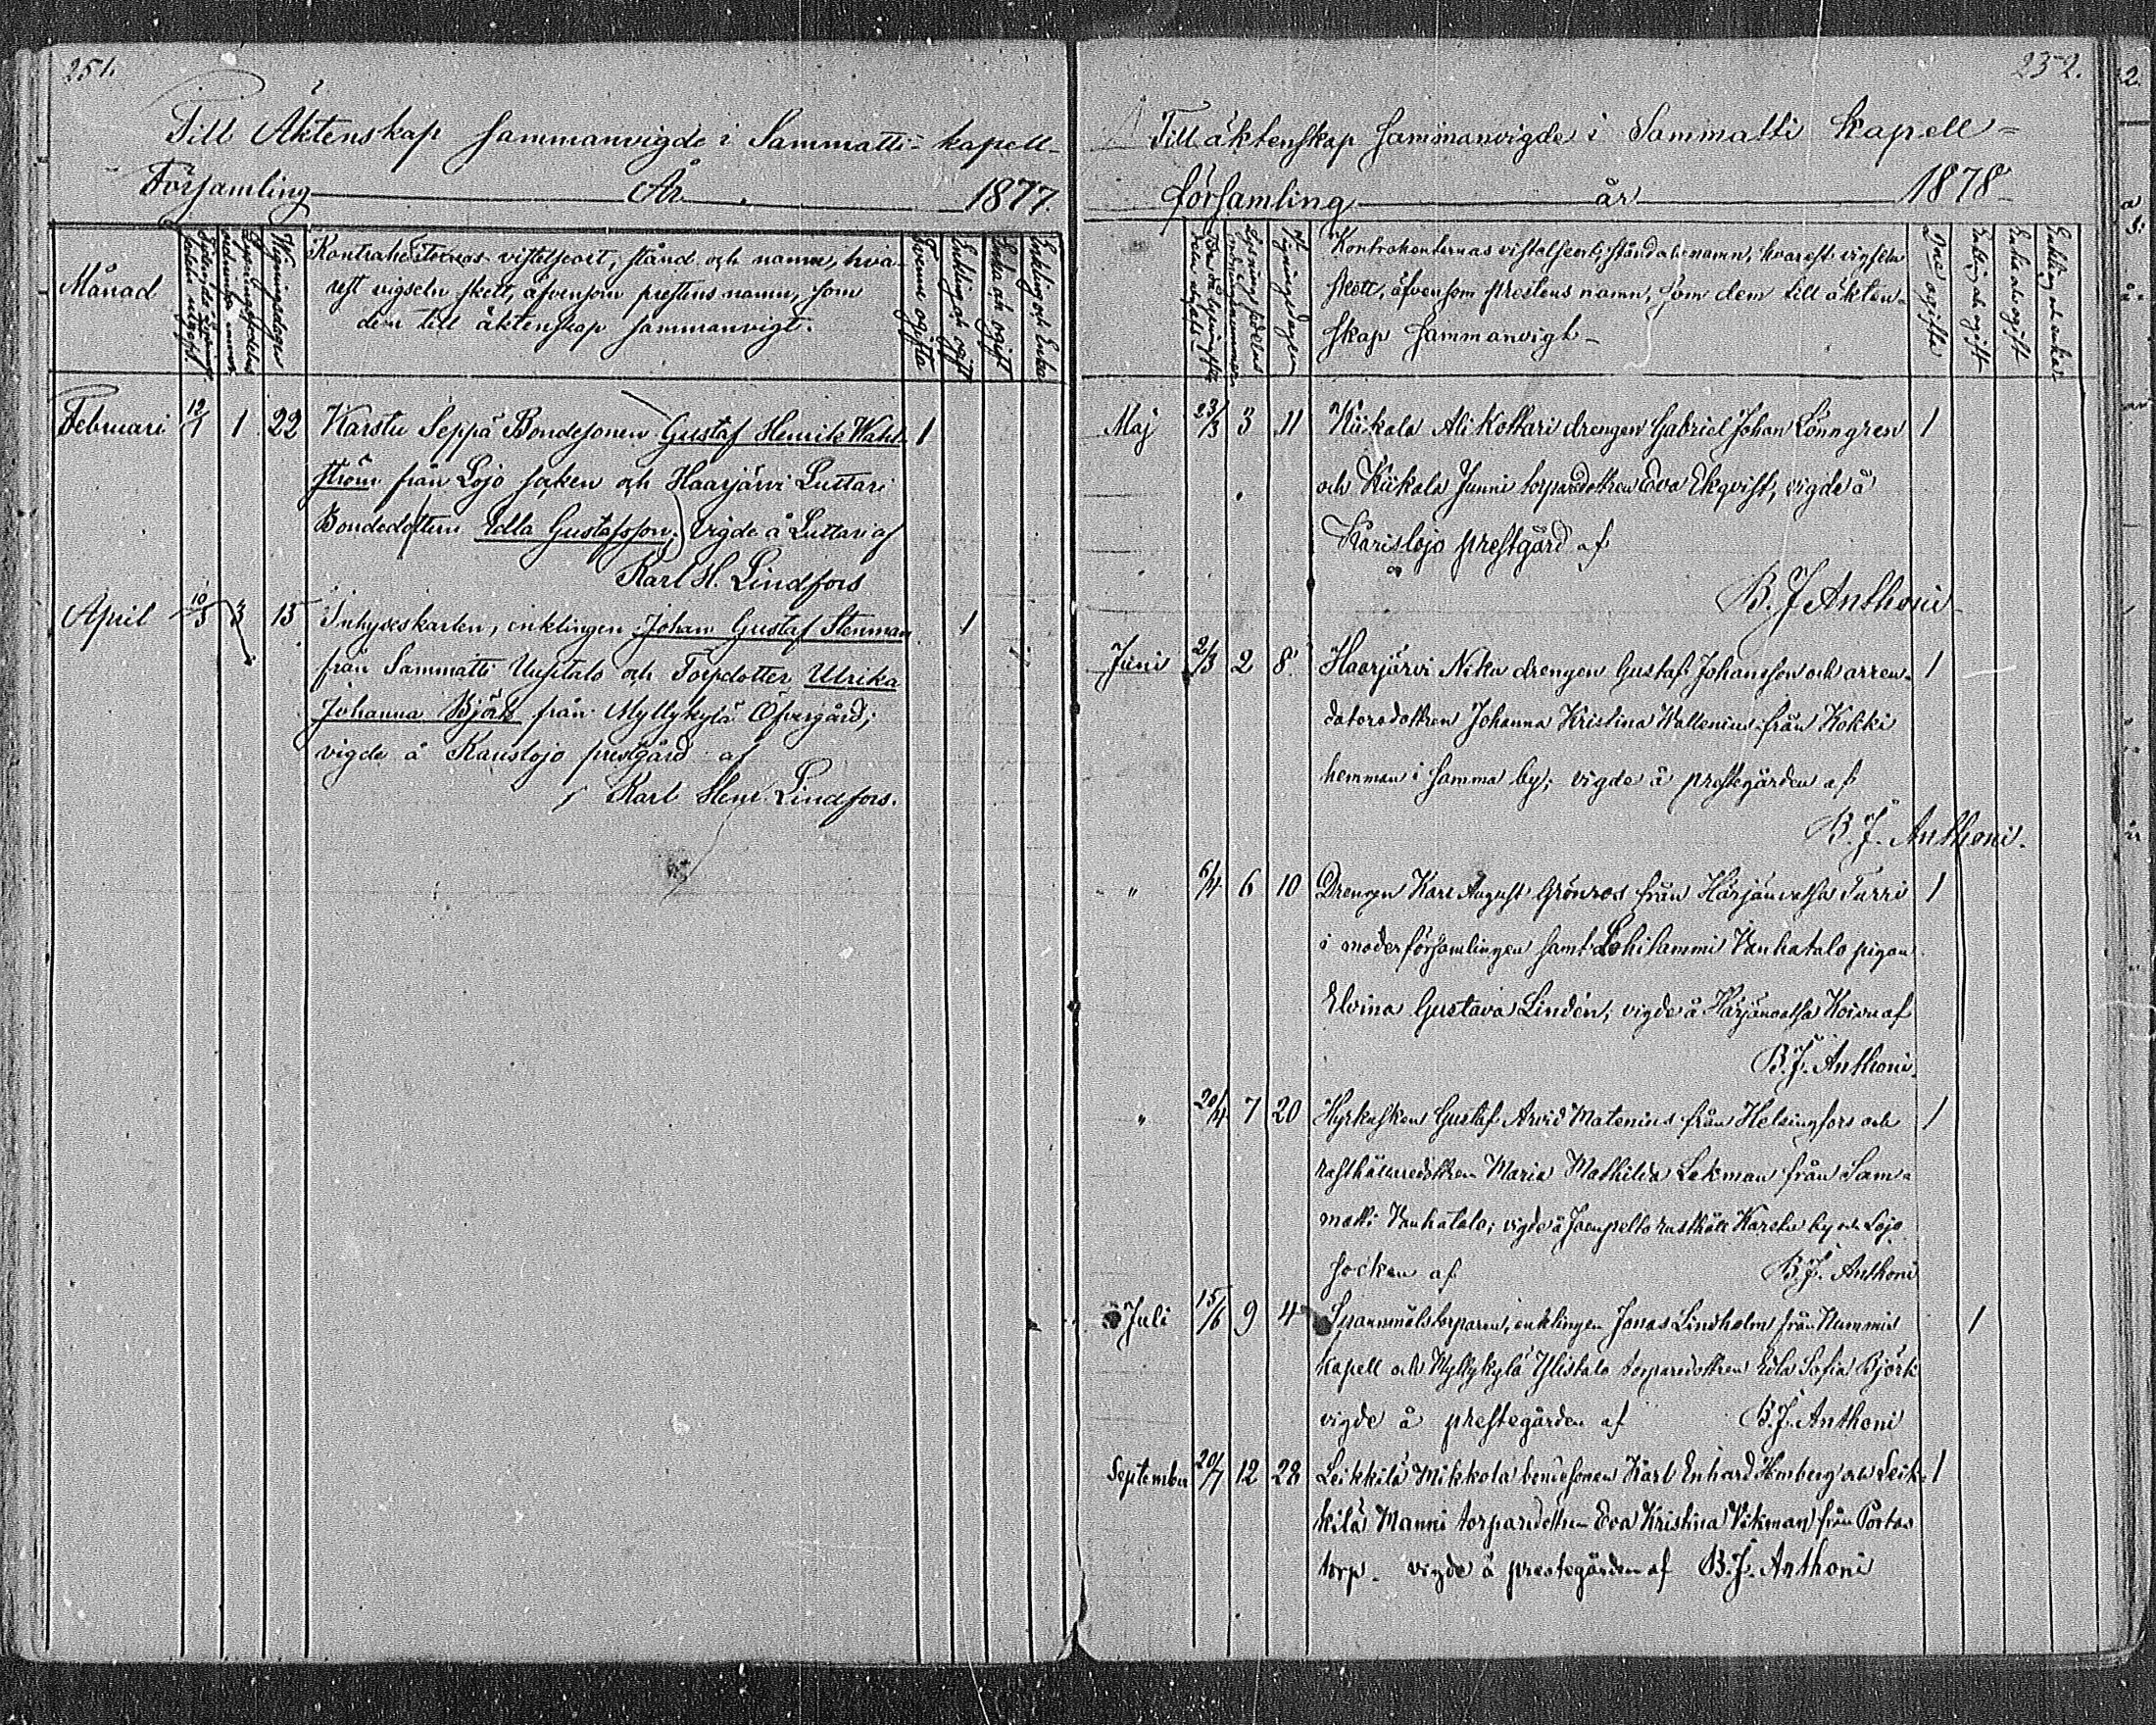 251.
Till Äktenskap sammanvigde i Sammatti kapell-
Församling År 1877.
Månad
Wigningsdagen
Kontrahenternas vistelseort, stånd och namn, hva-
rest vigseln skett, äfvensom prestens namn, som
dem till äktenskap sammanvigt.
Tvenne ogifta
Enkling och ogift
Enka och ogift
Enkling och Enka
Februari 12/1 1 22 Karstu Seppä Bondesonen Gustaf Henrik Wahl- 1
ström från Lojo socken och Haarjärvi Luttari
Bondedottern Edla Gustafsson. Vigde å Luttari af
Karl H. Lindfors
April 10/3 3 15 Inhyseskarlen, enklingen Johan Gustaf Stenman 1
från Sammatti Uusitalo och Torpdotter Ulrika
Johanna Björk från Myllykylä Öfvergård;
vigde å Karislojo prestgård af
Karl Henr. Lindfors.
232.
Till äktenskap sammanvigde i Sammatti Kapell-
församling år 1878
Kontrahenternas vistelseort, stånd och namn, hvarest vigseln
skett, äfvensom prestens namn, som dem till äkten-
skap sammanvigt-
Två ogifta
Enkling och ogift
Enka och ogift
Enkling och enka
Maj 23/3 3 11 Kiikala Ali Kottari drengen Gabriel Johan Lönngren 1
och Kiikala Junni torparedottren Eva Ekqvist, vigde å
Karislojo prestgård af
B. J. Anthoni
Juni 2/3 2 8 Haarjärvi Niku drengen Gustaf Johansson och arren- 1
datorsdottren Johanna Kristina Wallenius från Kokki
hemman i samma by; vigde å prestegården af
B. J. Anthoni.
" 6/4 6 10 Drengen Karl August Grönroos från Härjänvatsa Turri 1
i moderförsamlingen samt Lohilammi Vanhatalo pigan
Elvina Gustava Lindén; vigde å Härjänvatsa Koivu af
B. J. Anthoni.
" 20/4 7 20 Hyrkusken Gustaf Arvid Matenius från Helsingfors och 1
rusthållaredottren Maria Mathilda Lekman från Sam-
matti Vanhatalo; vigde å Jaempelto rusthåll Karstu by och Lojo
socken af B. J. Anthoni
Juli 15/6 9 4 Spanmålstorparen, enklingen Jonas Lindholm från Nummis 1
kapell och Myllykylä Ylistalo torparedottren Edla Sofia Björk
vigde å prestegården af B. J. Anthoni
September 20/7 12 28 Leikkilä Mikkola bondesonen Karl Enhard Homberg och Leik- 1
kilä Manni torparedottren Eva Kristina Vikman från Portas
torp. vigde å prestegården af B. J. Anthoni